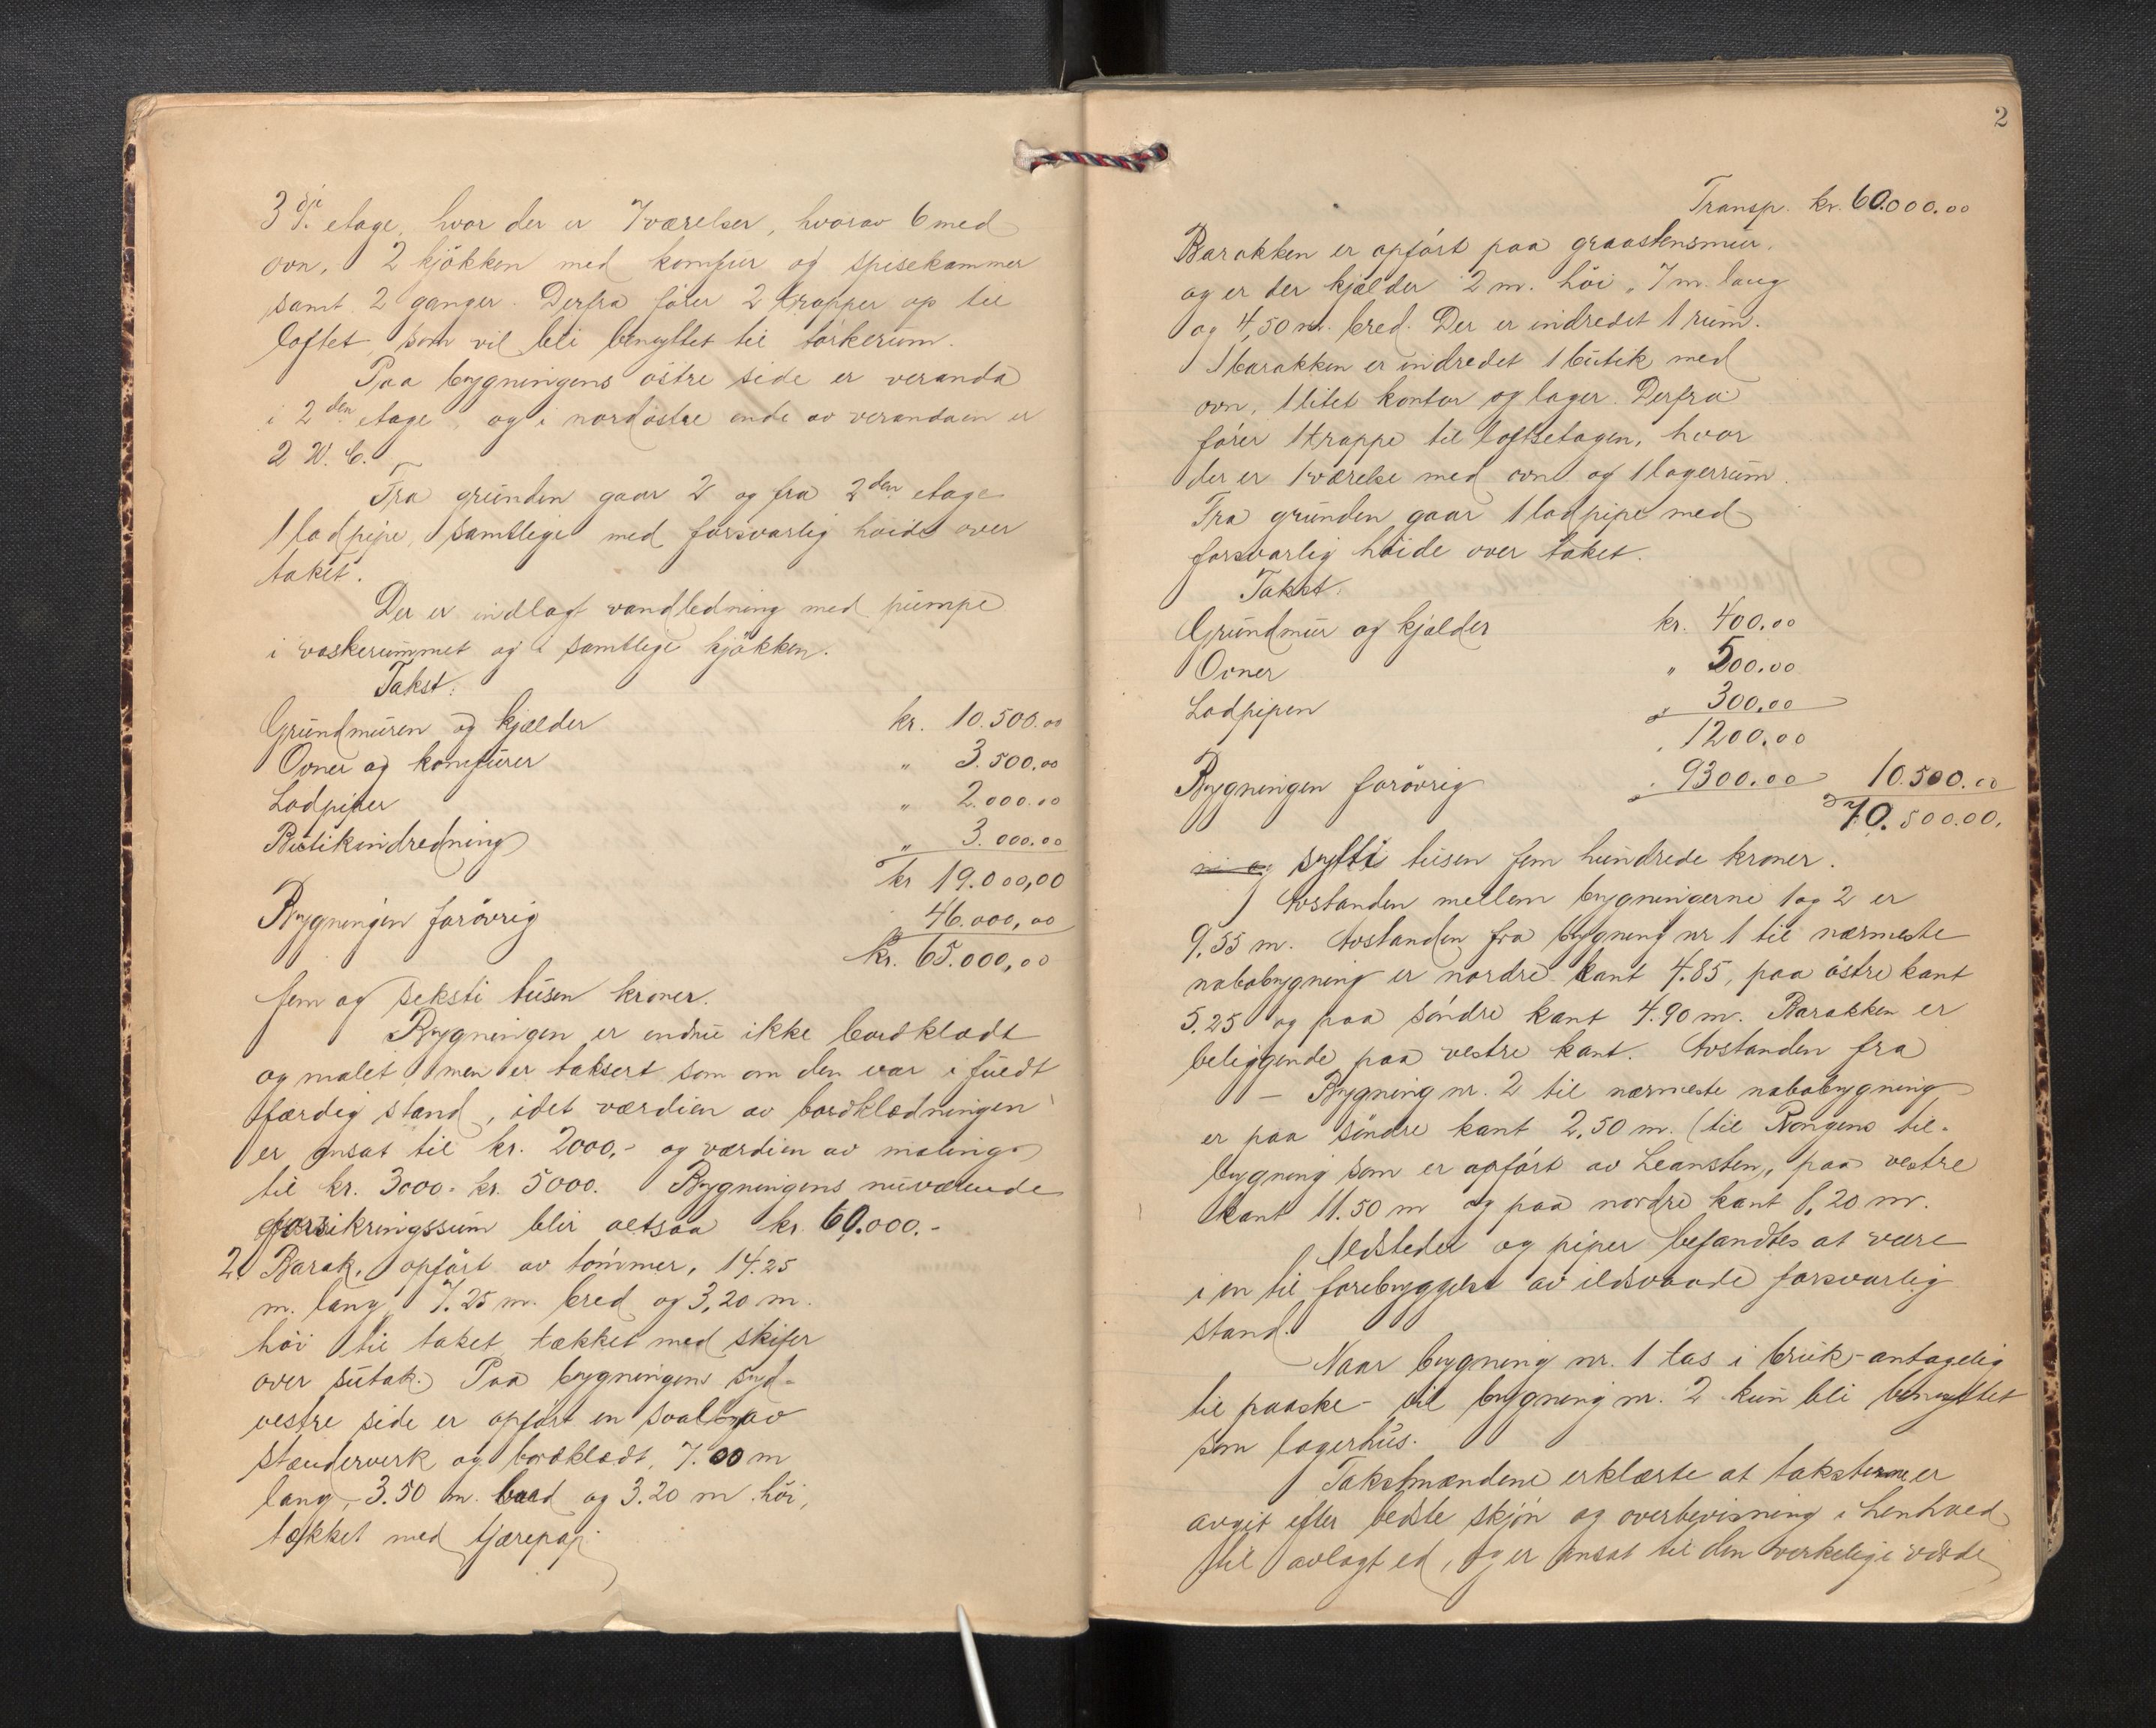 3dje etage, hvor der er 7 værelser, hvorav 6 med
ovn, 2 kjökken med komfur og spisekammer
samt 2 ganger. Derfra förer 2 trapper op til
loftet, som vil bli benyttet til törkerum.
Paa bygningens östre side er veranda
i 2den etage, og i nordöstre ende av verandaen er
2 W. C.
Fra grunden gaar 2 og fra 2den etage
1 lodpipe, samtlige med forsvarlig höide over
taket.
Der er indlagt vandledning med pumpe
i vaskerummet og i samtlige kjökken.
Takst:
Grundmuren og kjælder kr. 10.500.00
Ovner og komfurer " 3.500.00
Lodpiper " 2.000.00
Butikindredning " 3.000.00
kr 19.000,00
Bygningen forövrig " 46.000,00
kr. 65.000,00
fem og seksti tusen kroner.
Bygningen er endnu ikke bordklædt
og malet, men er taksert som om den var i fuldt
færdig stand, idet værdien av bordklædningen
er ansat til kr. 2000,- og værdien av maling
til kr. 3000.- kr. 5000. Bygningens nuværende
forsikringssum blir altsaa kr. 60.000.-
2. Barak, opfört av tömmer, 14.25
m. lang, 7.25 m. bred og 3,20 m.
höi til taket, tækket med skifer
over sutak. Paa bygningens syd-
vestre side er opfört en sval av
stenderverk og bordklædt, 7.00 m
lang, 3.50 m. bred og 3.20 m. höi,
tækket med tjærepap.
2
Transp. kr. 60.000.00
Barakken er opfört paa graastensmur,
og er der kjælder 2 m. höi, 7 m. lang
og 4,50 m. bred. Der er indredet 1 rum.
I barakken er indredet 1 butik med
ovn, 1 litet kontor og lager. Derfra
förer 1 trappe til loftsetagen, hvor
der er 1 værelse med ovn og 1 lagerrum.
Fra grunden gaar 1 lodpipe med
forsvarlig höide over taket.
Takst:
Grundmur og kjælder kr. 400.00
Ovner " 500.00
Lodpipen " 300.00
" 1200.00
Bygningen forövrig " 9300.00 10.500.00
70.500.00.
ni og sytti tusen fem hundrede kroner.
Avstanden mellem bygningerne 1 og 2 er
9,55 m. Avstanden fra bygning nr 1 til nærmeste
nabobygning er nordre kant 4.85, paa östre kant
5.25 og paa söndre kant 4.90 m. Barakken er
beliggende paa vestre kant. Avstanden fra
- Bygning nr. 2 til nærmeste nabobygning
er paa söndre kant 2,50 m. (til Rongens til-
bygning som er opfört av Leansten), paa vestre
kant 11.50 m og paa nordre kant 8,20 m.
Ildsteder og piper befandtes at være
i en til forebyggelse av ildsvaade forsvarlig
stand.
Naar bygning nr. 1 tas i bruk - antagelig
til paaske - vil bygning nr. 2 kun bli benyttet
som lagerhus.
Takstmændene erklærte at taksterne er
avgit efter bedste skjön og overbevisning i henhold
til avlagt ed, og er ansat til den verkelige værdi